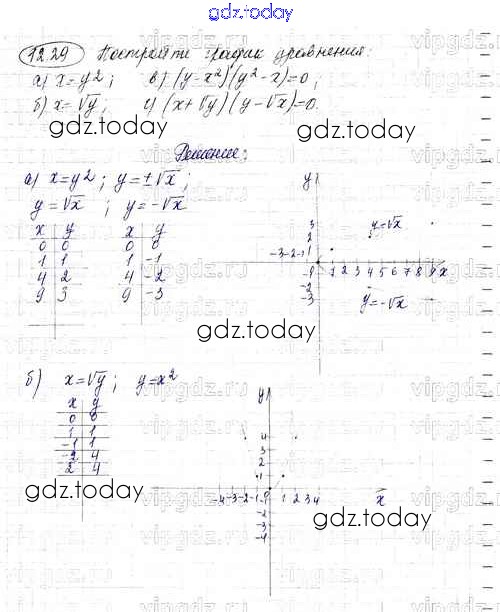 gdz.today
12.29 Постройти график уравнения:
а) x=y²; в) (y-x²)(y²-x)=0;
б) x=√y; г) (x+√y)(y-√x)=0.
gdz.today
gdz.today
Решение:
а) x=y²; y=±√x;
y=√x; y=-√x
x y x y
0 0 0 0
1 1 1 -1
4 2 4 2
9 3 9 -3
y
3
2
1
y=√x
-3 -2 -1 0 1 2 3 4 5 6 7 8 9 x
-1
-2
-3
y=-√x
gdz.today
gdz.today
б) x=√y; y=x²
x y
0 0
1 1
-1 1
-2 4
2 4
y
4
3
2
1
-4 -3 -2 -1 0 1 2 3 4 x
-2
-3
-4
gdz.today
gdz.today
vipgdz.ru